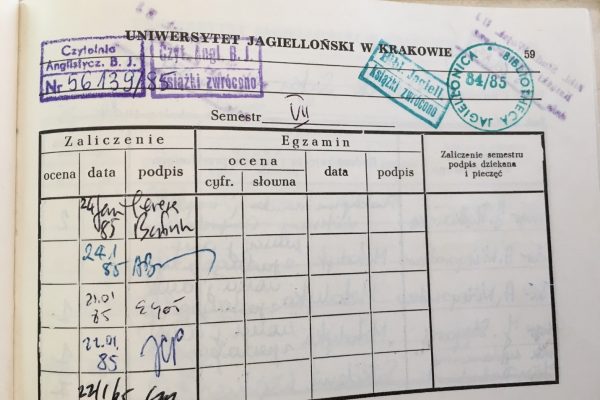 UNIWERSYTET JAGIELLOŃSKI W KRAKOWIE
59
Czytelnia
Anglistycz. B. J.
Nr 56139/85
Czyt. Angl. B. J.
książki zwrócono
Bibl. Jagiell.
książki zwrócono
BIBLIOTHECA JAGIELLONICA
84/85
Semestr VII
Zaliczenie
Egzamin
Zaliczenie semestru
podpis dziekana
i pieczęć
ocena data podpis
ocena
cyfr. słowna
data podpis
24 jan
85
24.1
85
21.01
85
22.01.
85
22/1/85